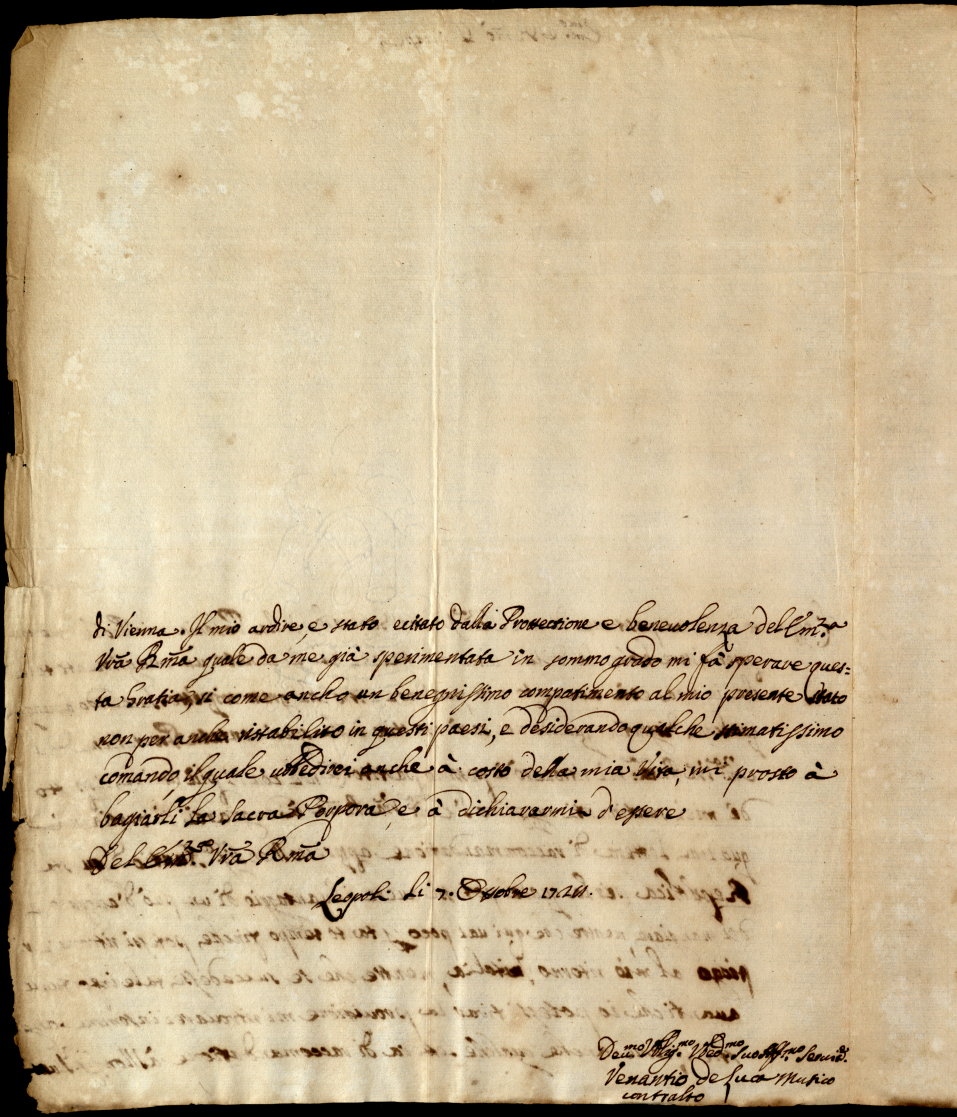 di Vienna. Il mio ardire è stato ecitato dalla Prottectione e benevolenza dell'Em.za
Vrã Rmã quale da me già sperimentata in sommo grado mi fà sperare ques=
ta Gratia, si come ancho un benegnissimo compatimento al mio presente stato
non per anche ristabilito in questi paesi, e desiderando qualche stimatissimo
comando, il quale ubbedirei anche à costo della mia Vita, mi prosto à
bagiarli la Sacra Porpora, e à dichiararmi d'essere
Dell'Em.za Vrã Rmã
Leopoli li 7. Ottobre
Dev.mo Obblig.mo Servid.
Venantio de Luca Musico
contralto